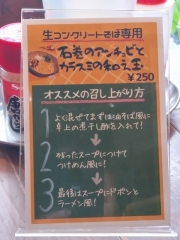 生コンクリートそば専用
石巻のアンチョビと
カラスミの和え玉
¥250
オススメの召し上がり方
1 よく混ぜてまずは油そば風に
卓上の煮干し酢を入れて!
2 残ったスープにつけて
つけめん風に!
3 最後はスープにドボンと
ラーメン風!